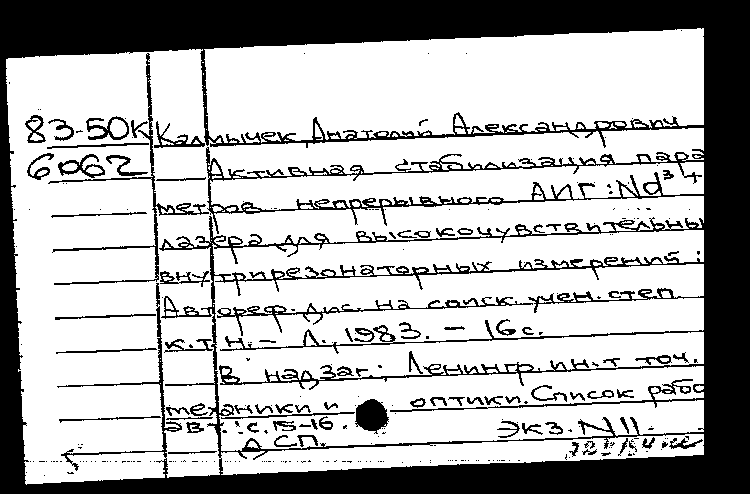 83-50К Калмычек, Анатолий Александрович
6062 Активная стабилизация пара
метров непрерывного АИГ:Nd³⁺
лазера для высокочувствительны
внутрирезонаторных измерений:
Автореф. дис. на соиск. учен. степ.
к.т.н. - Л., 1983. - 16 с.
В надзаг.: Ленингр. ин-т точ.
механики и оптики. Список рабо
авт.: с. 15-16. Экз. N 11.
ДСП.